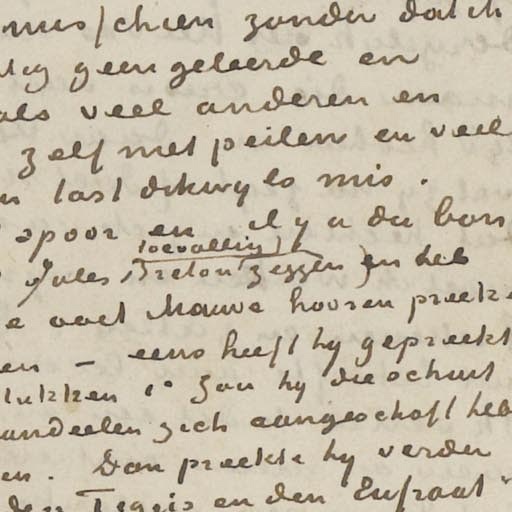 misschien zonder dat ik
geen geleerde en
als veel anderen en
zelf met peilen en veel
tast dikwijls mis.
spoor en il y a du bon
toevallig
Jules Breton zeggen) en heb
ook Mauve hooren preeken
en – eens heeft hij gepreekt
stukken of hij die schuit
zich aangeschaft heb
en. Dan preekte hij verder
den Tigris en den Eufraat